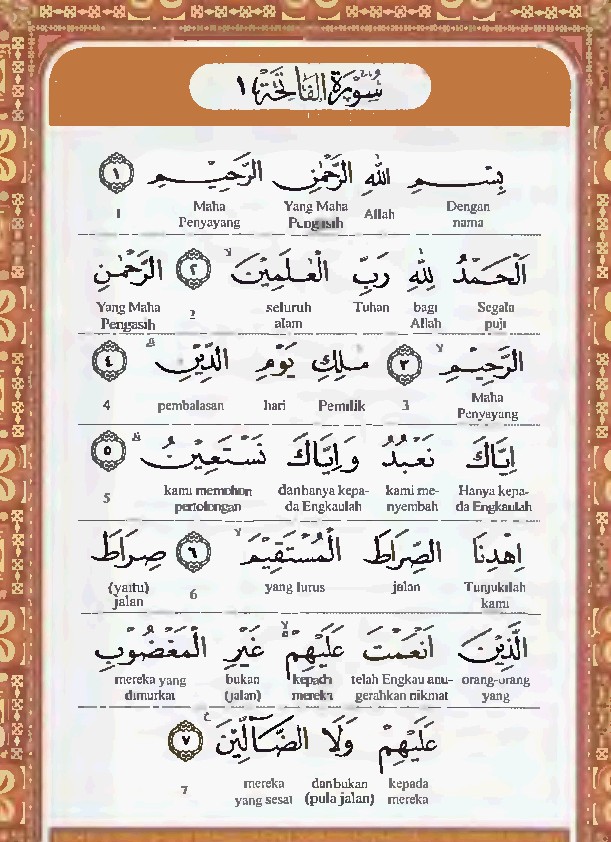 سُورَةُ الفَاتِحَةِ ١
بِسْمِ اللّٰهِ الرَّحْمٰنِ الرَّحِيْمِ ١
Dengan nama Allah Yang Maha Pengasih Maha Penyayang 1
اَلْحَمْدُ لِلّٰهِ رَبِّ الْعٰلَمِيْنَۙ ٢ الرَّحْمٰنِ
Segala puji bagi Allah Tuhan seluruh alam 2 Yang Maha Pengasih
الرَّحِيْمِۙ ٣ مٰلِكِ يَوْمِ الدِّيْنِۗ ٤
Maha Penyayang 3 Pemilik hari pembalasan 4
اِيَّاكَ نَعْبُدُ وَاِيَّاكَ نَسْتَعِيْنُۗ ٥
Hanya kepa-da Engkaulah kami me-nyembah dan hanya kepa-da Engkaulah kami memohon pertolongan 5
اِهْدِنَا الصِّرَاطَ الْمُسْتَقِيْمَۙ ٦ صِرَاطَ
Tunjukilah kami jalan yang lurus 6 (yaitu) jalan
الَّذِيْنَ اَنْعَمْتَ عَلَيْهِمْ ەۙ غَيْرِ الْمَغْضُوْبِ
orang-orang yang telah Engkau anu-gerahkan nikmat kepada mereka bukan (jalan) mereka yang dimurkai
عَلَيْهِمْ وَلَا الضَّاۤلِّيْنَ ٧
kepada mereka dan bukan (pula jalan) mereka yang sesat 7